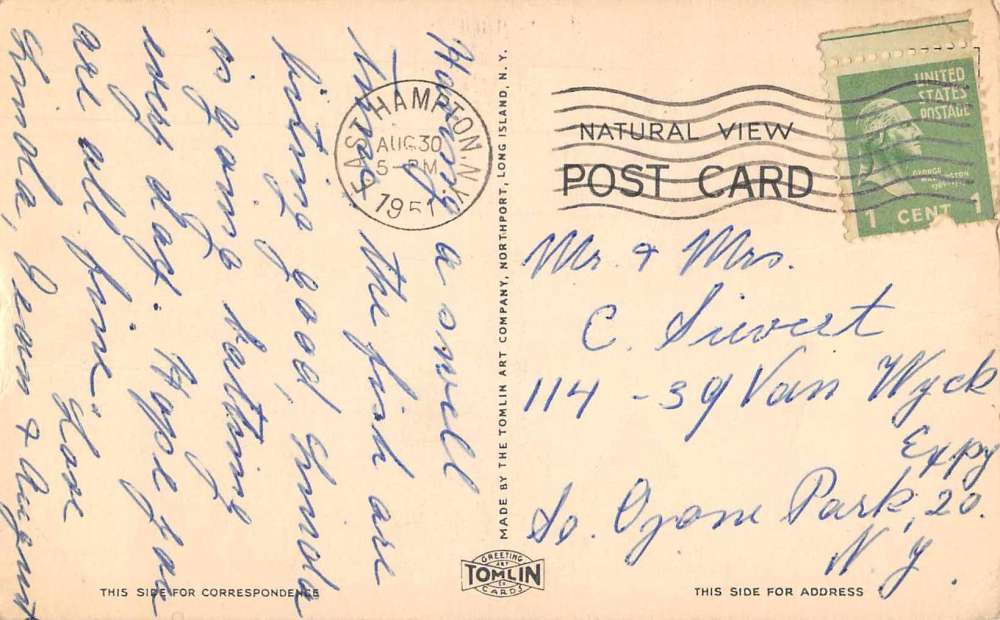 Having a swell
time the fish are
biting good, Linda
is going bathing
every day. Hope you
are all fine.
Love
Linda, Jean & August
EAST HAMPTON, N.Y.
AUG 30
5-PM
1951
MADE BY THE TOMLIN ART COMPANY, NORTHPORT, LONG ISLAND, N.Y.
UNITED
STATES
POSTAGE
GEORGE
WASHINGTON
1 CENT 1
NATURAL VIEW
POST CARD
Mr. & Mrs.
C. Sievert
114-39 Van Wyck
Expy
So. Ozone Park, 20.
N.Y.
GREETING
ART
TOMLIN
CO
CARDS
THIS SIDE FOR CORRESPONDENCE
THIS SIDE FOR ADDRESS